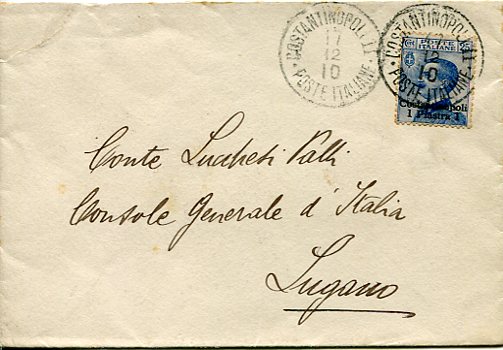 COSTANTINOPOLI
17
12
10
POSTE ITALIANE
COSTANTINOPOLI
12
10
POSTE ITALIANE
POSTE ITALIANE
Costantinopoli
1 Piastra 1
Conte Luchesi Palli
Console Generale d'Italia
Lugano